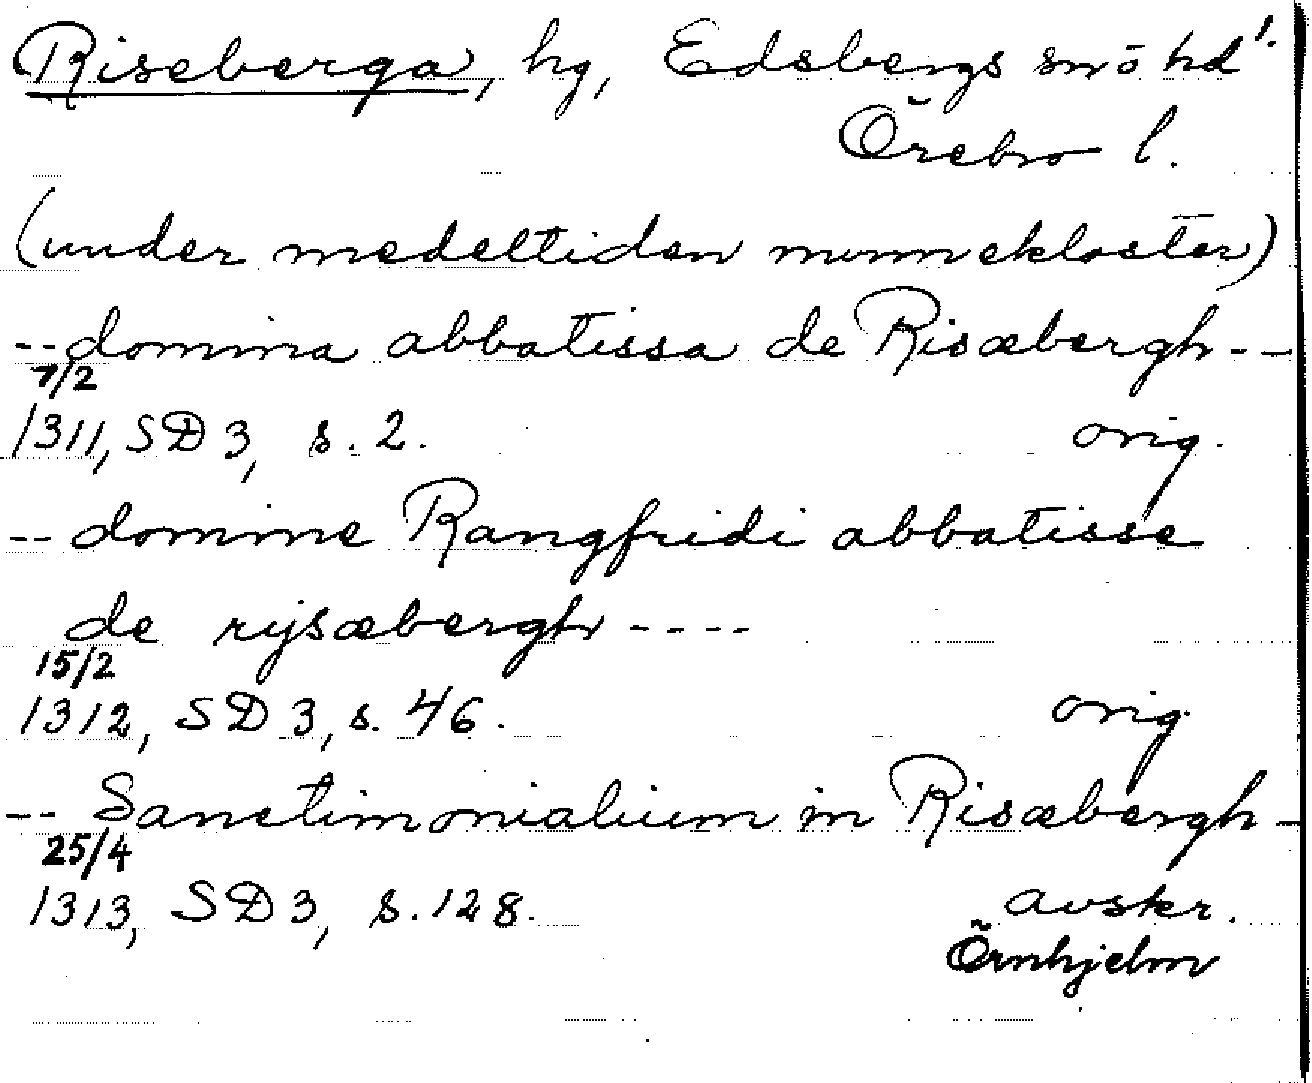 Riseberga, hg, Edsbergs snö hd!
Örebro l.
(under medeltiden nunnekloster)
-- domina abbatissa de Risæbergh --
7/2
1311, SD 3, s. 2. orig.
-- domine Rangfridi abbatisse
de rysæbergh ----
15/2
1312, SD 3, s. 46. orig.
-- Sanctimonialium in Risæbergh -
25/4
1313, SD 3, s. 128. avskr.
Örnhjelm